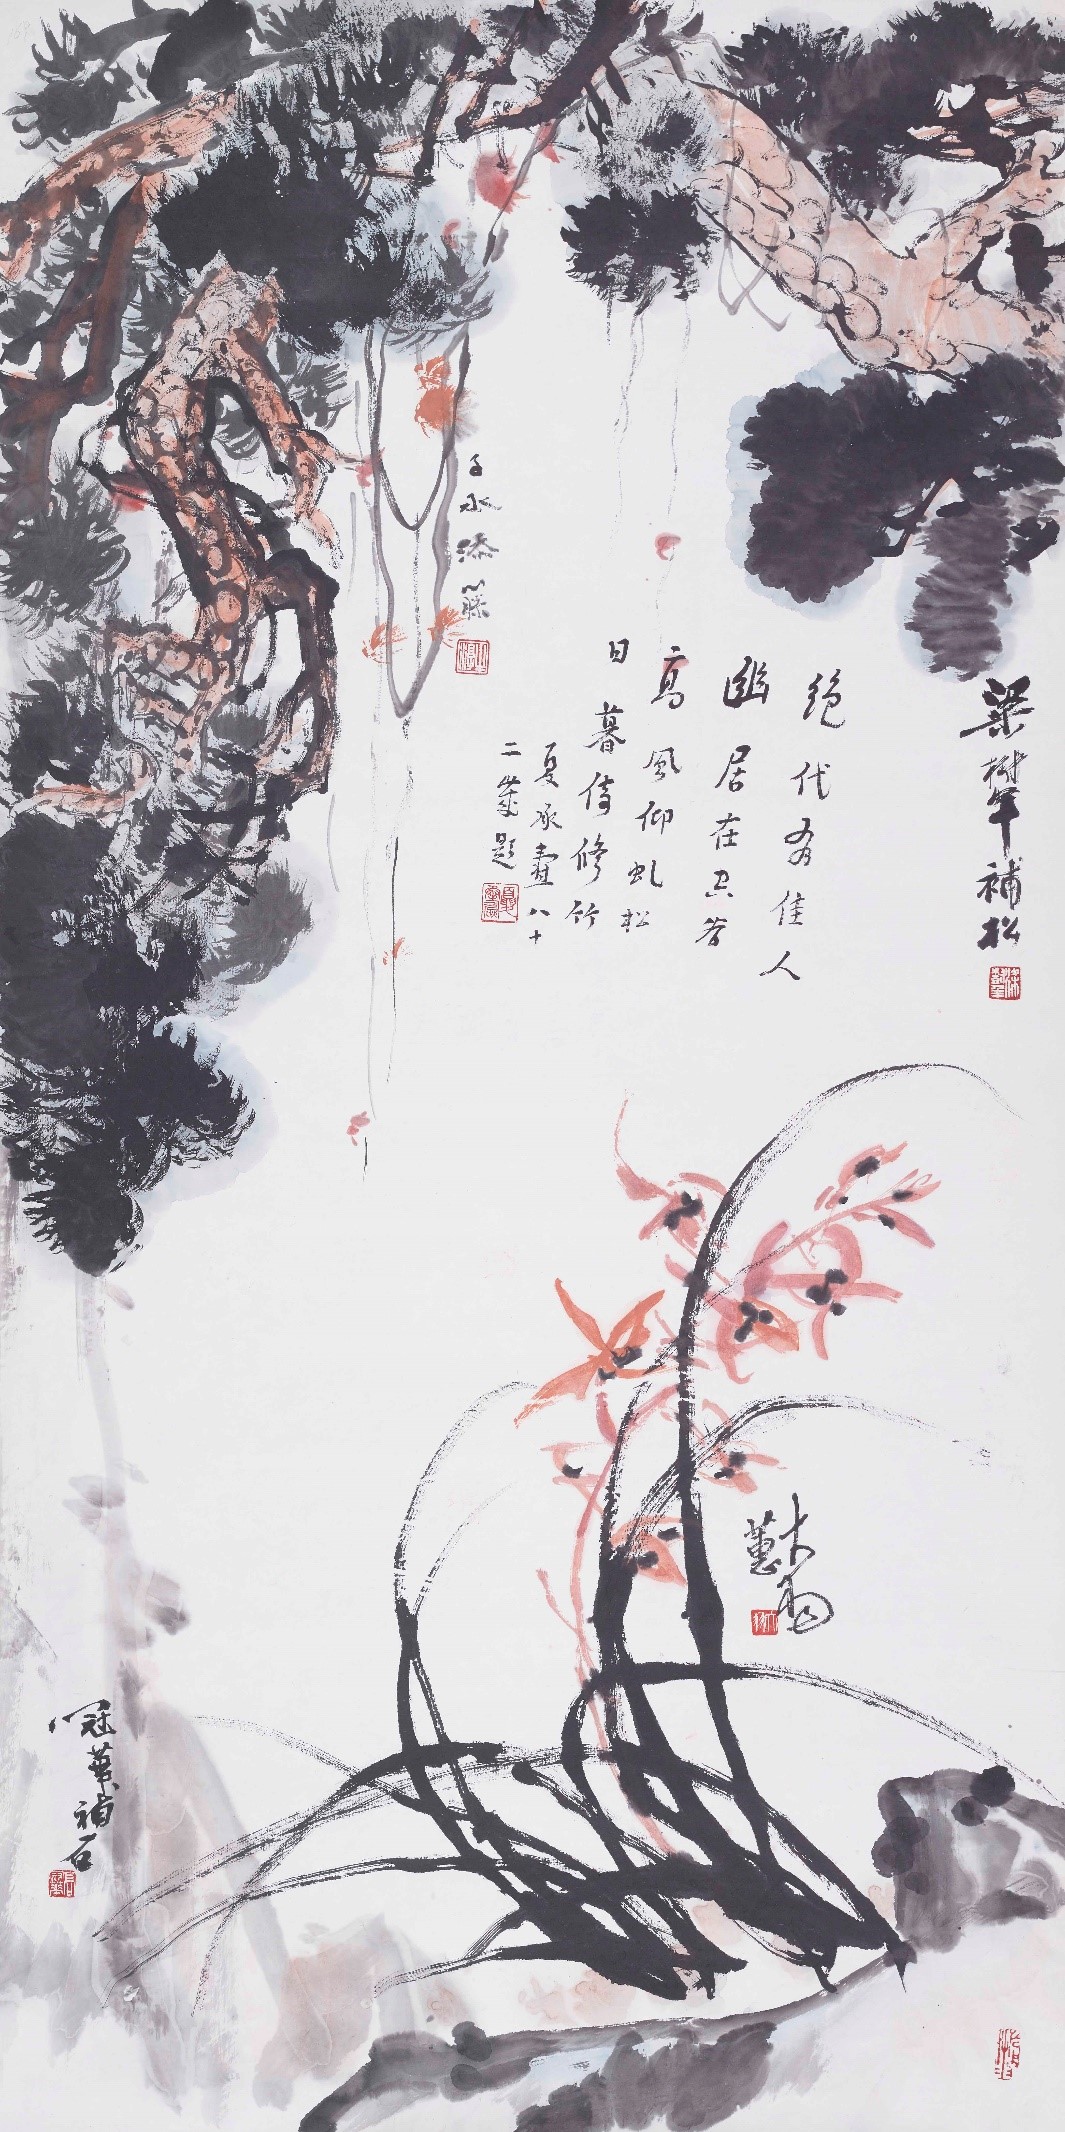 梁樹年補松
絕代有佳人
幽居在空谷
高風仰虬松
日暮倚修竹
夏承燾八十
二歲題
子水添藤
大羽
蕙
冠華補石